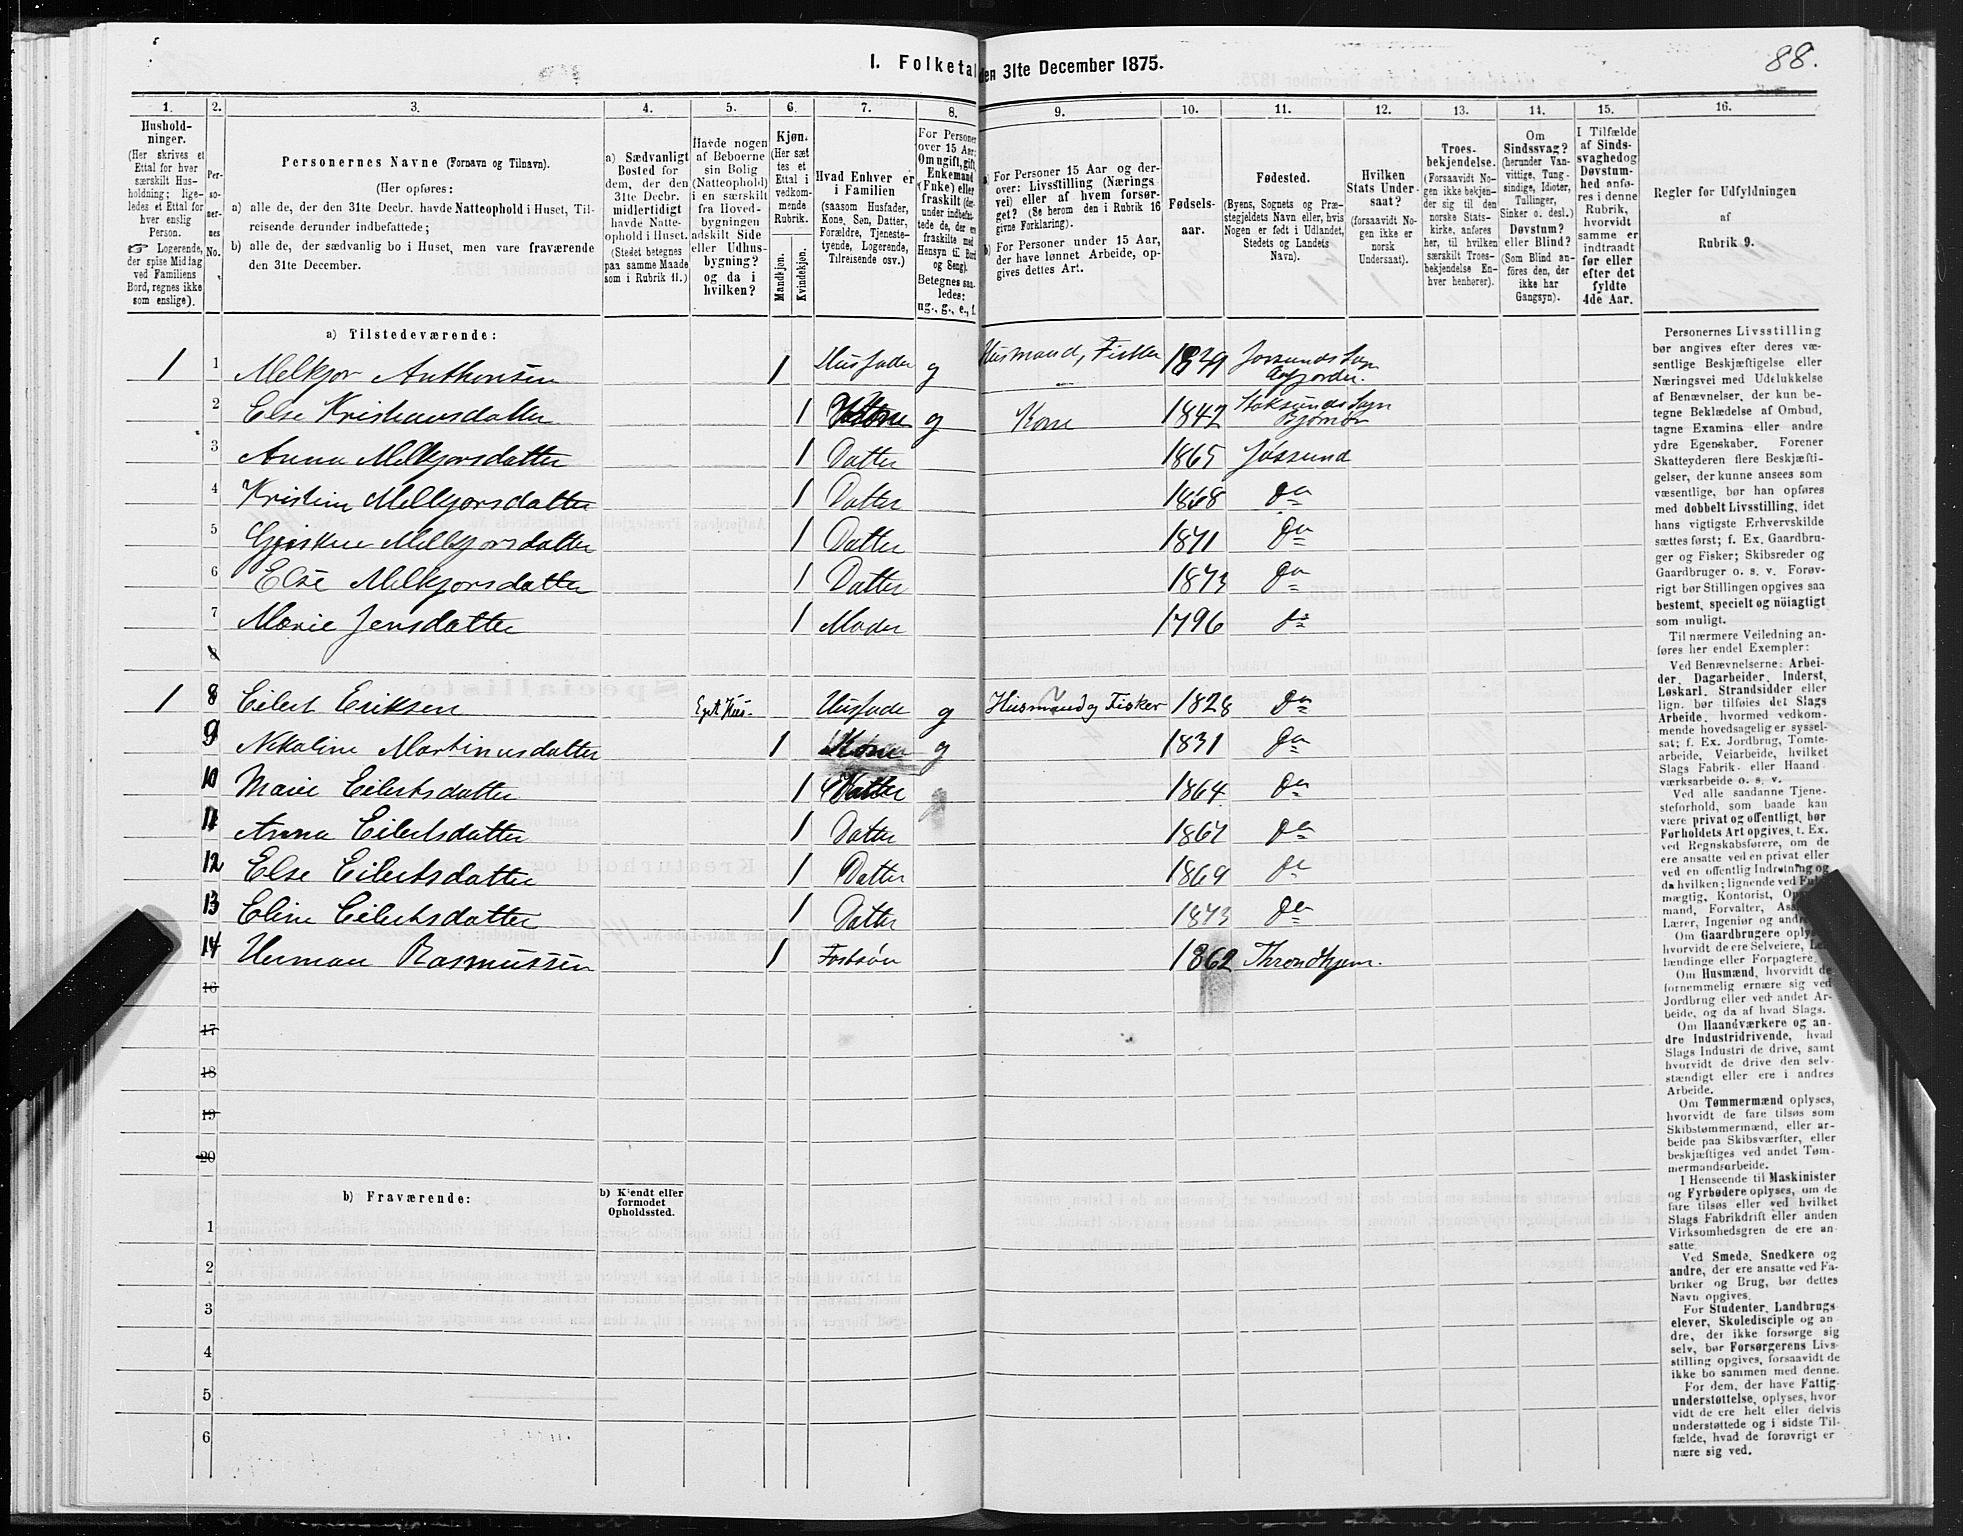 88.
I. Folketal den 31te December 1875.
1. 2. 3. 4. 5. 6. 7. 8. 9. 10. 11. 12. 13. 14. 15. 16.
Hushold-
ninger.
(Her skrives et
Ettal for hver
særskilt Hus-
holdning; lige-
ledes et Ettal for
hver enslig
Person.
☞ Logerende,
der spise Middag
ved Familiens
Bord, regnes ikke
som enslige).
Per-
so-
ner-
nes
No.
Personernes Navne (Fornavn og Tilnavn).
(Her opføres:
a) alle de, der den 31te Decbr. havde Natteophold i Huset, Til-
reisende derunder indbefattede;
b) alle de, der sædvanlig bo i Huset, men vare fraværende
den 31te December.
a) Sædvanligt
Bosted for
dem, der den
31te Decbr.
midlertidigt
havde Natte-
ophold i Huset.
(Stedet betegnes
paa samme Maade
som i Rubrik 11.)
Havde nogen
af Beboerne
sin Bolig
(Natteophold)
i en særskilt
fra Hoved-
bygningen
adskilt Side
eller Udhus-
bygning?
og da i
hvilken?
Kjøn.
(Her sæt
tes et
Ettal i
vedkom-
mende
Rubrik.
Mandkjøn.
Kvindekjøn.
Hvad Enhver er
i Familien
(saasom Husfader,
Kone, Søn, Datter,
Forældre, Tjeneste-
tyende, Logerende,
Tilreisende osv.)
For Personer
over 15 Aar:
Om ugift, gift,
Enkemand
(Enke) eller
fraskilt (der-
under indbefat-
tede de, der ere
fraskilte med
Hensyn til Bord
og Seng).
Betegnes saa-
ledes:
ug., g., e., f.
a) For Personer 15 Aar og der-
over: Livsstilling (Nærings
vei) eller af hvem forsør-
get? (Se herom den i Rubrik 16
givne Forklaring).
b) For Personer under 15 Aar,
der have lønnet Arbeide, op-
gives dettes Art.
Fødsels-
aar.
Fødested.
(Byens, Sognets og Præ-
stegjeldets Navn eller, hvis
Nogen er født i Udlandet,
Stedets og Landets
Navn).
Hvilken
Stats Under-
saat?
(forsaavidt No-
gen ikke er
norsk
Undersaat).
Troes-
bekjendelse.
(Forsaavidt No-
gen ikke bekjen-
der sig til den
norske Stats-
kirke, anføres
her, til hvilken
særskilt Troes-
bekjendelse En-
hver henhører).
Om
Sindssvag?
(herunder Van-
vittige, Tung-
sindige, Idioter,
Tullinger,
Sinker o. desl.)
Døvstum?
eller Blind?
(Som Blind an-
føres den, der
ikke har
Gangsyn).
I Tilfælde
af Sinds-
svaghed og
Døvstum-
hed anfø-
res i denne
Rubrik,
hvorvidt
samme er
indtraadt
før eller
efter det
fyldte
4de Aar.
Regler for Udfyldningen
af
Rubrik 9.
a) Tilstedeværende:
1 1 Melkjor Anthonsen 1 Husfader g Husmand, Fisker 1829 Jossunds Sogn Aafjorden.
2 Else Kristiansdatter 1 Kone g Kone 1842 Stoksunds Sogn Bjørnør
3 Anna Melkjorsdatter 1 Datter 1865 Jossund
4 Kristine Melkjorsdatter 1 Datter 1868 Do
5 Gjertine Melkjorsdatter 1 Datter 1871 Do
6 Else Melkjorsdatter 1 Datter 1873 Do
7 Marie Jensdatter 1 Moder 1796 Do
8
1 8 Eilert Eriksen Eget Hus. Husfade g Husmand og Fisker 1828 Do
9 Nikoline Martinusdatter 1 Kone g 1831 Do
10 Marie Eilertsdatter 1 Datter 1864 Do
11 Anna Eilertsdatter 1 Datter 1867 Do
12 Else Eilertsdatter 1 Datter 1869 Do
13 Eline Eilertsdatter 1 Datter 1873 Do
14 Herman Rasmussen 1 Fostsøn 1862 Throndhjem.
16
17
18
19
20
b) Fraværende: b) Kjendt eller
formodet
Opholdssted.
1
2
3
4
5
6
Personernes Livsstilling
bør angives efter deres væ-
sentlige Beskjæftigelse eller
Næringsvei med Udelukkelse
af Benævnelser, der kun be-
tegne Beklædelse af Ombud,
tagne Examina eller andre
ydre Egenskaber. Forener
Skatteyderen flere Beskjæfti-
gelser, der kunne ansees som
væsentlige, bør han opføres
med dobbelt Livsstilling, idet
hans vigtigste Erhvervskilde
sættes først; f. Ex. Gaardbru-
ger og Fisker; Skibsreder og
Gaardbruger o. s. v. Forøv-
rigt bør Stillingen opgives saa
bestemt, specielt og nöiagtigt
som muligt.
Til nærmere Veiledning an-
føres her endel Exempler:
Ved Benævnelserne: Arbei-
der, Dagarbeider, Inderst,
Løskarl, Strandsidder eller
lign. bør tilføies det Slags
Arbeide, hvormed vedkom-
mende hovedsagelig er syssel-
sat; f. Ex. Jordbrug, Tomte-
arbeide, Veiarbeide, hvilket
Slags Fabrik- eller Haand
værksarbeide o. s. v.
Ved alle saadanne Tjene-
steforhold, som baade kan
være privat og offentligt, bør
Forholdets Art opgives, t. Ex.
ved Regnskabsførere, om de
ere ansatte ved en privat eller
ved en offentlig Indretning og
da hvilken; lignende ved Ful
mægtig, Kontorist, Op
mand, Forvalter, Ass
Lærer, Ingeniør og andre
Om Gaardbrugere oplys
hvorvidt de ere Selveiere, Le
lændinge eller Forpagtere.
Om Husmænd, hvorvidt de
fornemmelig ernære sig ved
Jordbrug eller ved andet Ar-
beide, og da af hvad Slags.
Om Haandværkere og an-
dre Industridrivende, hvad
Slags Industri de drive, samt
hvorvidt de drive den selv-
stændigt eller ere i andres
Arbeide.
Om Tømmermænd oplyses,
hvorvidt de fare tilsøs som
Skibstømmermænd, eller ar-
beide paa Skibsværfter, eller
beskjæftiges ved andet Tøm-
mermandsarbeide.
I Henseende til Maskinister
og Fyrbødere oplyses, om de
fare tilsøs eller ved hvilket
Slags Fabrikdrift eller anden
Virksomhedsgren de ere an-
satte.
Ved Smede, Snedkere og
andre, der ere ansatte ved Fa-
briker og Brug, bør dettes
Navn opgives.
For Studenter, Landbrugs
elever, Skoledisciple og an
dre, der ikke forsørge sig
selv, bør Forsørgerens Livs-
stilling opgives, forsaavidt de
ikke bo sammen med denne.
For dem, der have Fattig-
understøttelse, oplyses, hvor-
vidt de ere helt eller delvis
understøttede og i sidste Til-
fælde, hvad de forøvrigt er
nære sig ved.